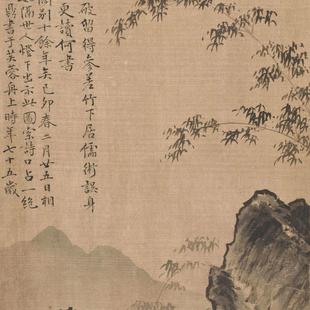 敲留得參差竹下居儒術誤身
更讀何書
別十餘年矣己卯春二月廿五日相
隔世人燈下出示此圖索詩口占一絶
鼎書于芙蓉舟上時年七十五歲